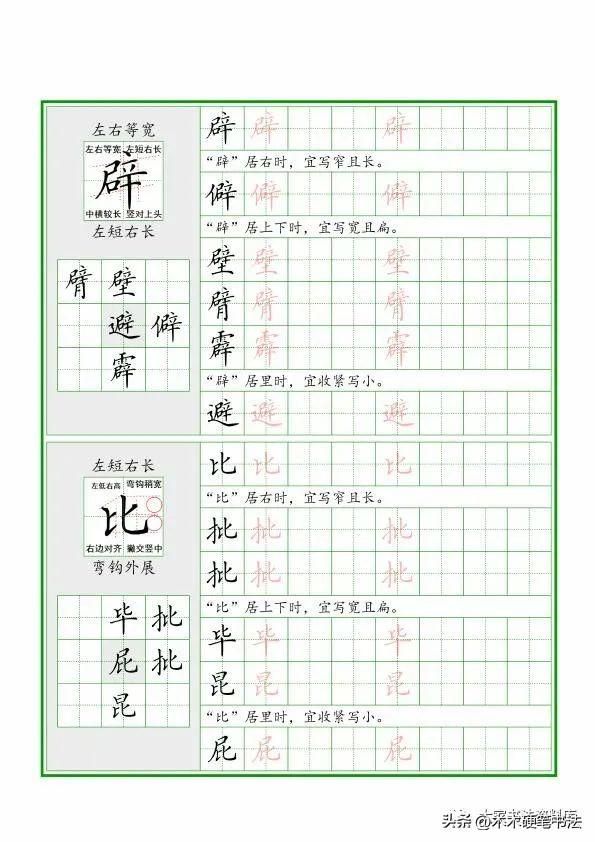 左右等宽
左右等宽 左短右长
辟
中横较长 竖对上头
左短右长
臂 壁
避 僻
霹
辟 辟 辟
“辟”居右时，宜写窄且长。
僻 僻 僻
“辟”居上下时，宜写宽且扁。
壁 壁 壁
臂 臂 臂
霹 霹 霹
“辟”居里时，宜收紧写小。
避 避 避
左短右长
左低右高 弯钩稍宽
比
右边对齐 交竖中
弯钩外展
毕 批
屁 批
昆
比 比 比
“比”居右时，宜写窄且长。
批 批 批
批 批 批
“比”居上下时，宜写宽且扁。
毕 毕 毕
昆 昆 昆
“比”居里时，宜收紧写小。
屁 屁 屁
头条 @木木硬笔书法